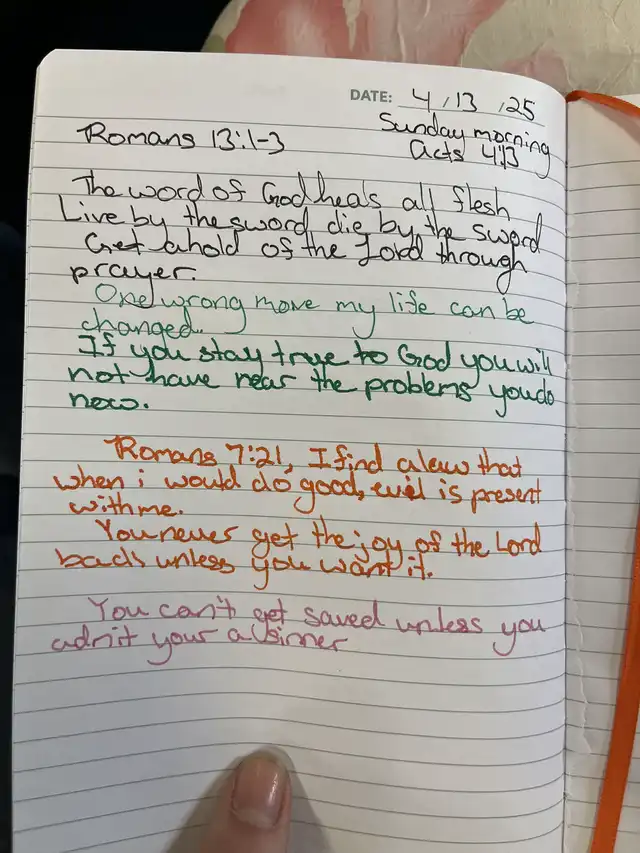 DATE: 4/13/25
Sunday morning
Romans 13:1-3
Acts 4:13
The word of God heals all flesh
Live by the sword die by the sword
Get ahold of the Lord through
prayer.
One wrong move my life can be
changed.
If you stay true to God you will
not have near the problems you do
now.
Romans 7:21, I find a law that
when i would do good, evil is present
with me.
You never get the joy of the Lord
back unless you want it.
You can't get saved unless you
admit your a sinner